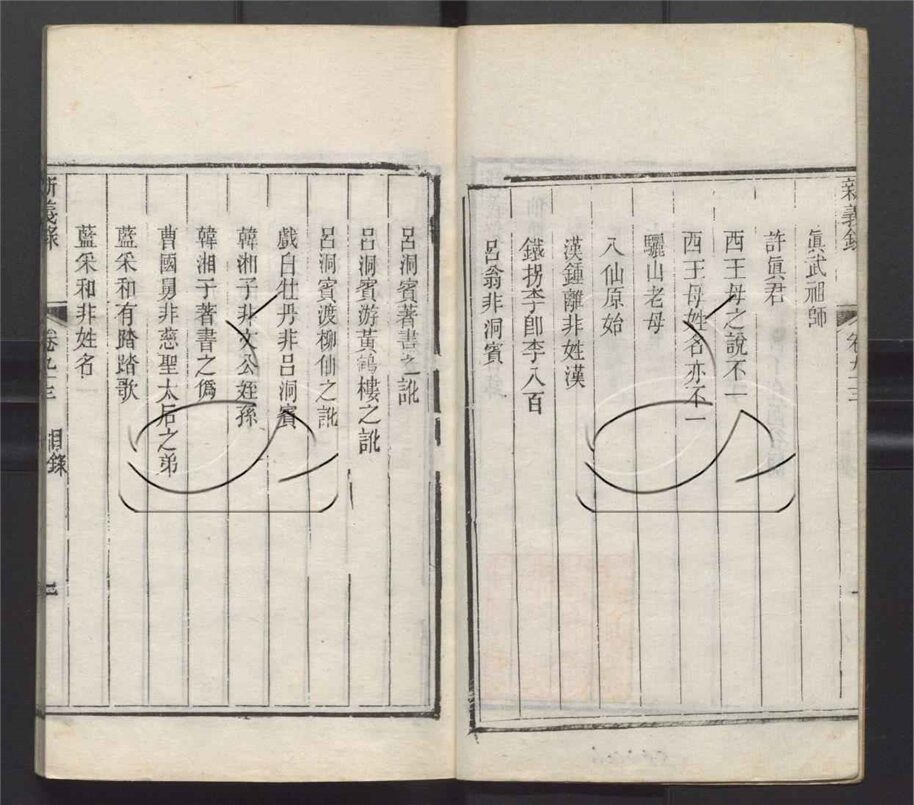 新義錄
卷九十三
眞武祖師
許眞君
西王母之說不一
西王母姓名亦不一
驪山老母
八仙原始
漢鍾離非姓漢
鐵拐李卽李八百
呂翁非洞賓
呂洞賓著書之訛
呂洞賓游黃鶴樓之訛
呂洞賓渡柳仙之訛
戲白牡丹非呂洞賓
韓湘子非文公姪孫
韓湘子著書之僞
曹國舅非慈聖太后之弟
藍采和有踏踏歌
藍采和非姓名
新義錄
卷九十三 目錄